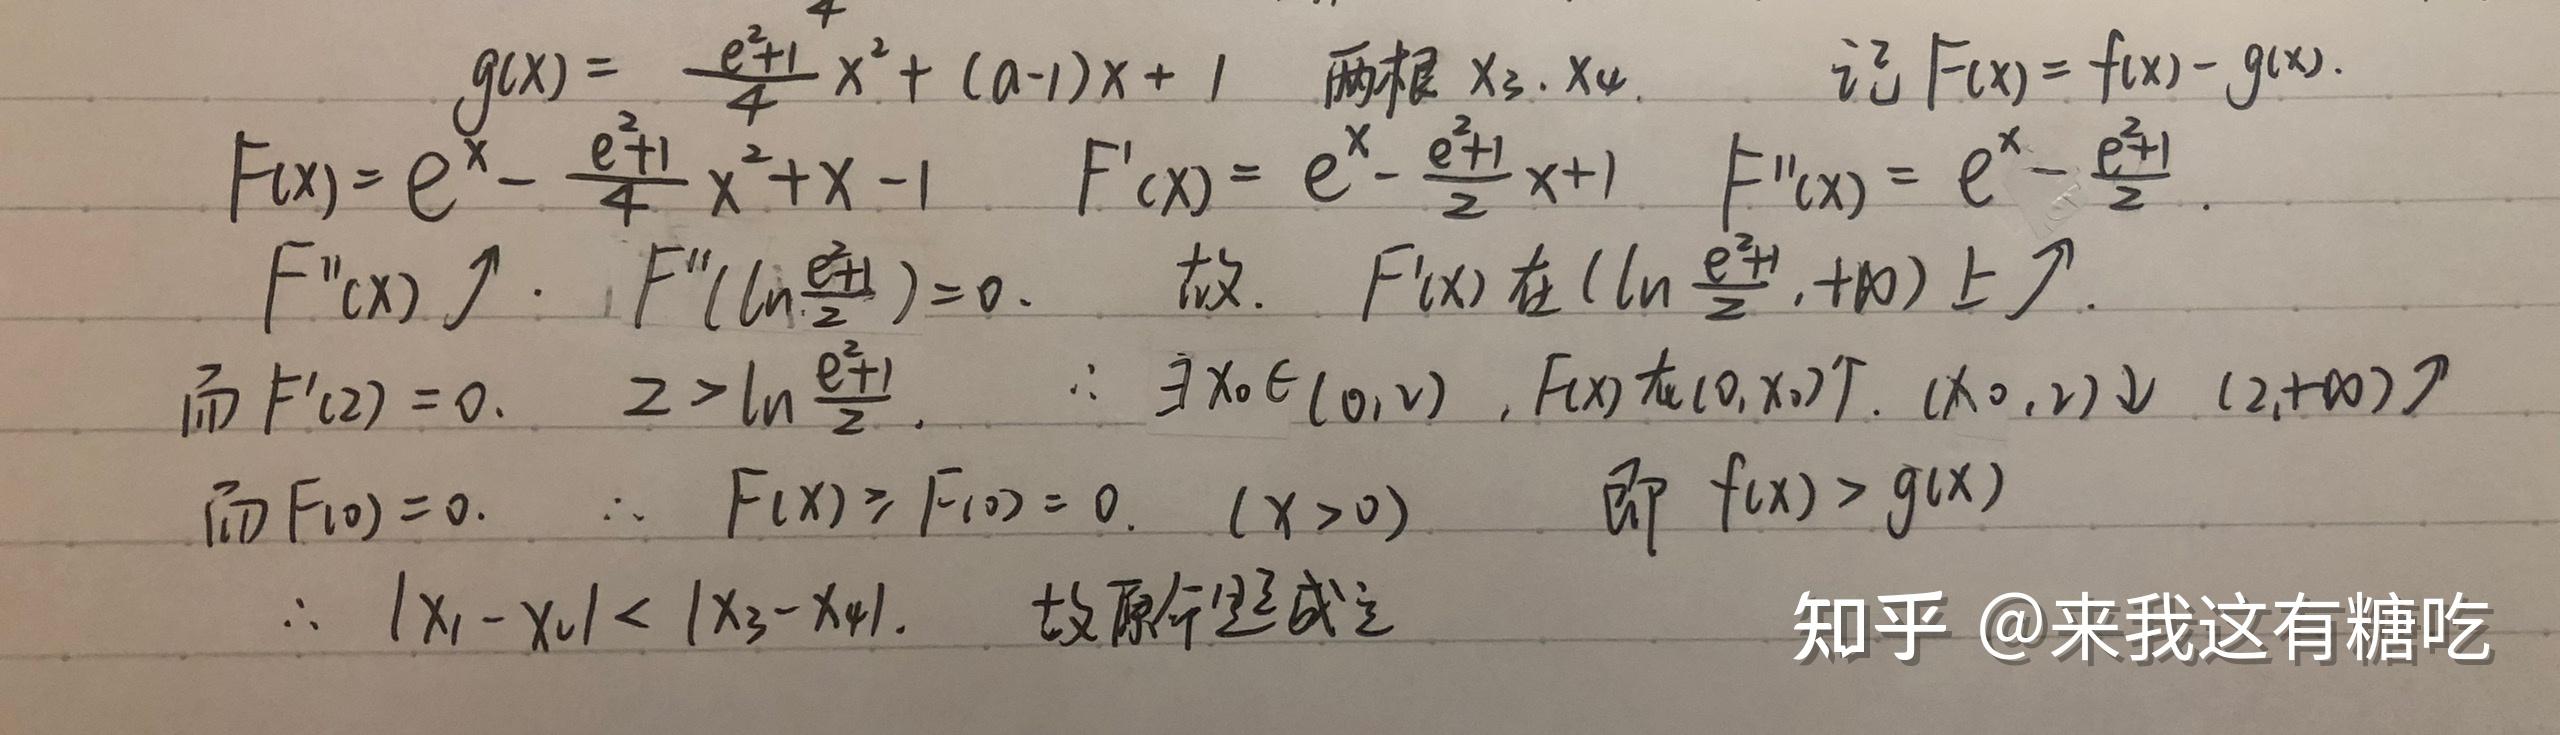 g(x) = \frac{e^2+1}{4}x^2 + (a-1)x + 1 两根 x_3. x_4. 记 F(x) = f(x) - g(x).
F(x) = e^x - \frac{e^2+1}{4}x^2 + x - 1 F'(x) = e^x - \frac{e^2+1}{2}x + 1 F''(x) = e^x - \frac{e^2+1}{2}.
F''(x) ↗. F''(ln \frac{e^2+1}{2}) = 0. 故. F'(x) 在 (ln \frac{e^2+1}{2}, +∞) 上 ↗.
而 F'(2) = 0. 2 > ln \frac{e^2+1}{2}. ∴ ∃x_0 ∈ (0, 2), F(x) 在 (0, x_0) ↑. (x_0, 2) ↓ (2, +∞) ↗
而 F(0) = 0. ∴ F(x) ≥ F(0) = 0. (x > 0) 即 f(x) > g(x)
∴ |x_1 - x_2| < |x_3 - x_4|. 故原命题成立
知乎 @来我这有糖吃